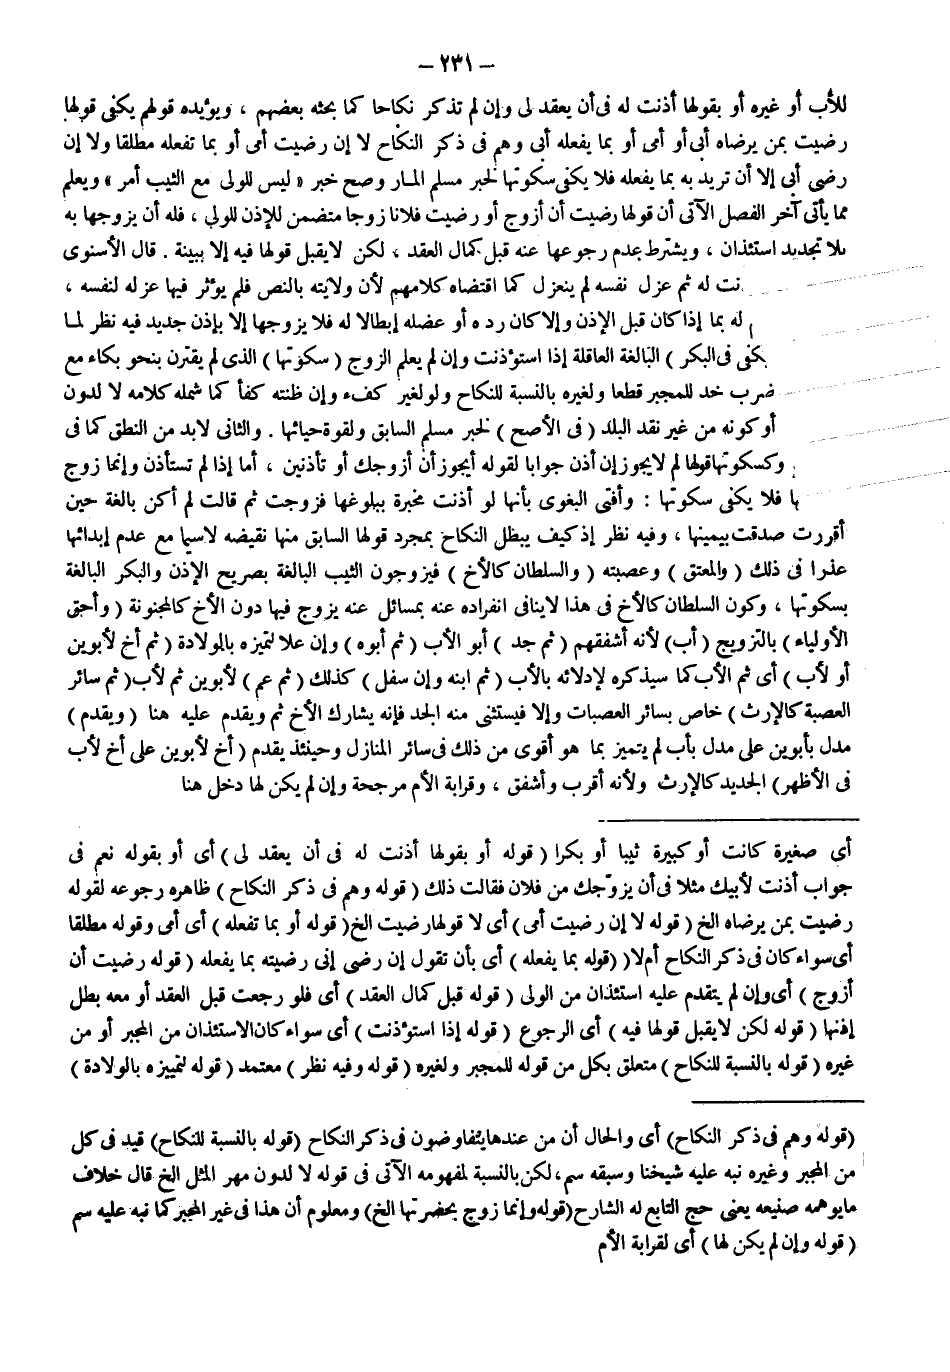 – ٢٣١ –
للأب أو غيره أو بقولها أذنت له فى أن يعقد لى وإن لم تذكر نكاحا كما بحثه بعضهم ، ويؤيده قولهم يكفى قولها
رضيت بمن يرضاه أبى أو أمى أو بما يفعله أبى وهم فى ذكر النكاح لا إن رضيت أمى أو بما تفعله مطلقا ولا إن
رضى أبى إلا أن تريد به بما يفعله فلا يكفى سكوتها لخبر مسلم المار وصح خبر « ليس للولى مع الثيب أمر » ويعلم
مما يأتى آخر الفصل الآتى أن قولها رضيت أن أزوج أو رضيت فلانا زوجا متضمن للإذن للولى ، فله أن يزوجها به
بلا تجديد استئذان ، ويشترط عدم رجوعها عنه قبل كمال العقد ، لكن لايقبل قولها فيه إلا ببينة . قال الأسنوى
نت له ثم عزل نفسه لم ينعزل كما اقتضاه كلامهم لأن ولايته بالنص فلم يؤثر فيها عزله لنفسه ،
له بما إذا كان قبل الإذن وإلا كان رده أو عضله إبطالا له فلا يزوجها إلا بإذن جديد فيه نظر لما
يكفى فى البكر ) البالغة العاقلة إذا استؤذنت وإن لم يعلم الزوج ( سكوتها ) الذى لم يقترن بنحو بكاء مع
ضرب خد للمجبر قطعا ولغيره بالنسبة للنكاح ولو لغير كفء وإن ظنته كفأ كما شمله كلامه لا لدون
أو كونه من غير نقد البلد ( فى الأصح ) لخبر مسلم السابق ولقوة حيائها . والثانى لابد من النطق كما فى
وكسكوتها قولها لم لايجوز إن أذن جوابا لقوله أيجوز أن أزوجك أو تأذنين ، أما إذا لم تستأذن وإنما زوج
ها فلا يكفى سكوتها : وأفتى البغوى بأنها لو أذنت مخبرة ببلوغها فزوجت ثم قالت لم أكن بالغة حين
أقررت صدقت بيمينها ، وفيه نظر إذ كيف يبطل النكاح بمجرد قولها السابق منها نقيضه لاسيما مع عدم إبدائها
عذرا فى ذلك ( والمعتق ) وعصبته ( والسلطان كالأخ ) فيزوجون الثيب البالغة بصريح الإذن والبكر البالغة
بسكوتها ، وكون السلطان كالأخ فى هذا لاينافى انفراده عنه بمسائل عنه يزوج فيها دون الأخ كالمجنونة ( وأحق
الأولياء ) بالتزويج ( أب) لأنه أشفقهم ( ثم جد ) أبو الأب ( ثم أبوه ) وإن علا لتميزه بالولادة ( ثم أخ لأبوين
أو لأب ) أى ثم الأب كما سيذكره لإدلائه بالأب ( ثم ابنه وإن سفل ) كذلك ( ثم عم ) لأبوين ثم لأب( ثم سائر
العصبة كالإرث ) خاص بسائر العصبات وإلا فيستثنى منه الجد فإنه يشارك الأخ ثم ويقدم عليه هنا ( ويقدم )
مدل بأبوين على مدل بأب لم يتميز بما هو أقوى من ذلك فى سائر المنازل وحينئذ يقدم ( أخ لأبوين على أخ لأب
فى الأظهر) الجديد كالإرث ولأنه أقرب وأشفق ، وقرابة الأم مرجحة وإن لم يكن لها دخل هنا
أى صغيرة كانت أو كبيرة ثيبا أو بكرا ( قوله أو بقولها أذنت له فى أن يعقد لى ) أى أو بقوله نعم فى
جواب أذنت لأبيك مثلا فى أن يزوّجك من فلان فقالت ذلك ( قوله وهم فى ذكر النكاح ) ظاهره رجوعه لقوله
رضيت بمن يرضاه الخ ( قوله لا إن رضيت أمى ) أى لا قولها رضيت الخ( قوله أو بما تفعله ) أى أمى وقوله مطلقا
أى سواء كان فى ذكر النكاح أم لا( (قوله بما يفعله ) أى بأن تقول إن رضى إنى رضيته بما يفعله ( قوله رضيت أن
أزوج ) أى وإن لم يتقدم عليه استئذان من الولى ( قوله قبل كمال العقد ) أى فلو رجعت قبل العقد أو معه بطل
إذنها ( قوله لكن لايقبل قولها فيه ) أى الرجوع ( قوله إذا استؤذنت ) أى سواء كان الاستئذان من المجبر أو من
غيره ( قوله بالنسبة للنكاح ) متعلق بكل من قوله للمجبر ولغيره ( قوله وفيه نظر ) معتمد ( قوله لتمييزه بالولادة )
(قوله وهم فى ذكر النكاح) أى والحال أن من عندها يتفاوضون فى ذكر النكاح (قوله بالنسبة للنكاح) قيد فى كل
من المجبر وغيره نبه عليه شيخنا وسبقه سم، لكن بالنسبة لمفهومه الآتى فى قوله لا لدون مهر المثل الخ قال خلاف
مايوهمه صنيعه يعنى حج التابع له الشارح(قوله وإنما زوج بحضرتها الخ) ومعلوم أن هذا فى غير المجبر كما نبه عليه سم
( قوله وإن لم يكن لها ) أى لقرابة الأم